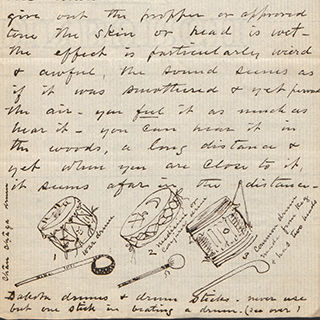 give out the propper or approved
tone the skin or head is wet -
the effect is particularly weird
& awful, the sound seems as
if it was smothered & yet
the air - you feel it as much as
hear it - you can hear it in
the woods, a long distance &
yet when you are close to it,
it seems afar in the distance -
Chan chaga
1
war drum
2
Medicine
3
Common drum
made from keg
& has two heads
Dakota drums & drum sticks. never use
but one stick in beating a drum. (see over)